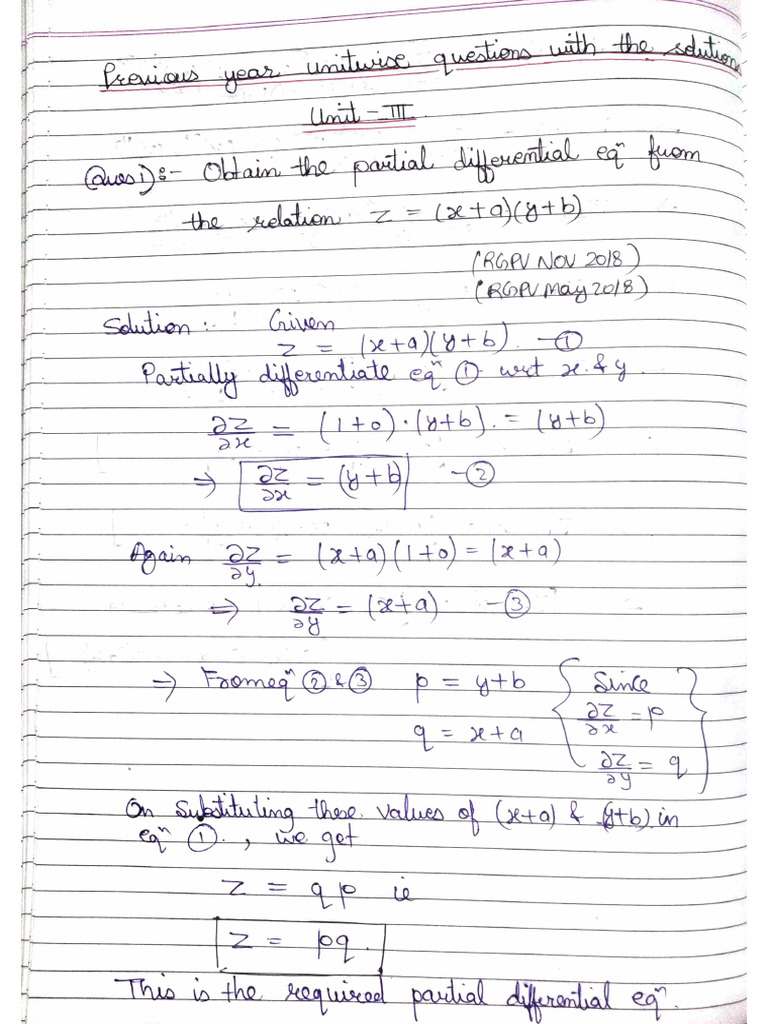 Previous year unitwise questions with the solution
Unit - III
(Ques 1):- Obtain the partial differential eqⁿ from
the relation z = (x+a)(y+b)
(RGPV NOV 2018)
(RGPV May 2018)
Solution:- Given
z = (x+a)(y+b). -①
Partially differentiate eqⁿ ① wrt x & y.
∂z/∂x = (1+0)·(y+b). = (y+b)
⇒ ∂z/∂x = (y+b) -②
Again ∂z/∂y = (x+a)(1+0) = (x+a)
⇒ ∂z/∂y = (x+a) -③
→ From eqⁿ ② & ③ p = y+b { Since
∂z/∂x = p
q = x+a
∂z/∂y = q }
On substituting these values of (x+a) & (y+b) in
eqⁿ ①., we get
z = qp ie
z = pq.
This is the required partial differential eqⁿ.